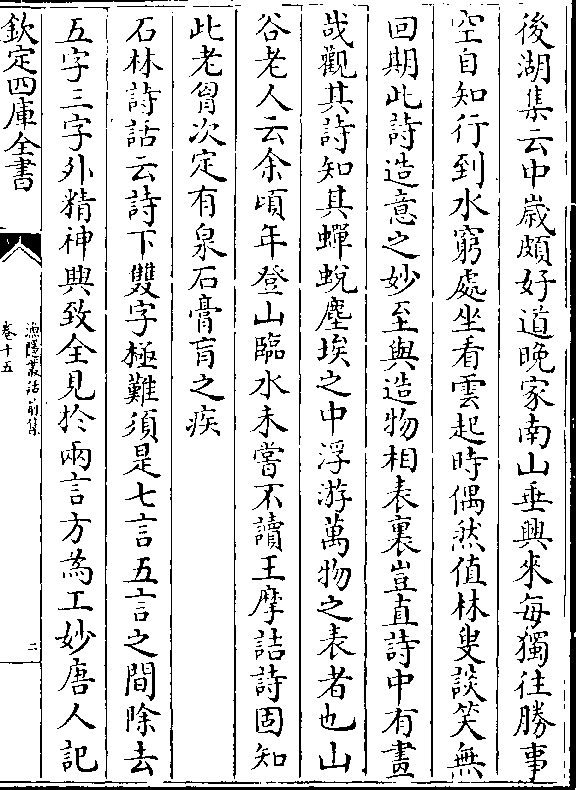 後湖集云中嵗頗好道晩家南山垂興來每獨往勝事
空自知行到水窮處坐看雲起時偶然值林叟談笑無
回期此詩造意之妙至與造物相表裏豈直詩中有畫
哉觀其詩知其蟬蛻塵埃之中浮游萬物之表者也山
谷老人云余頃年登山臨水未嘗不讀王摩詰詩固知
此老胷次定有泉石膏肓之疾
石林詩話云詩下雙字極難須是七言五言之間除去
五字三字外精神興致全見於兩言方為工妙唐人記
欽定四庫全書
漁隱叢話前集
卷十五
二